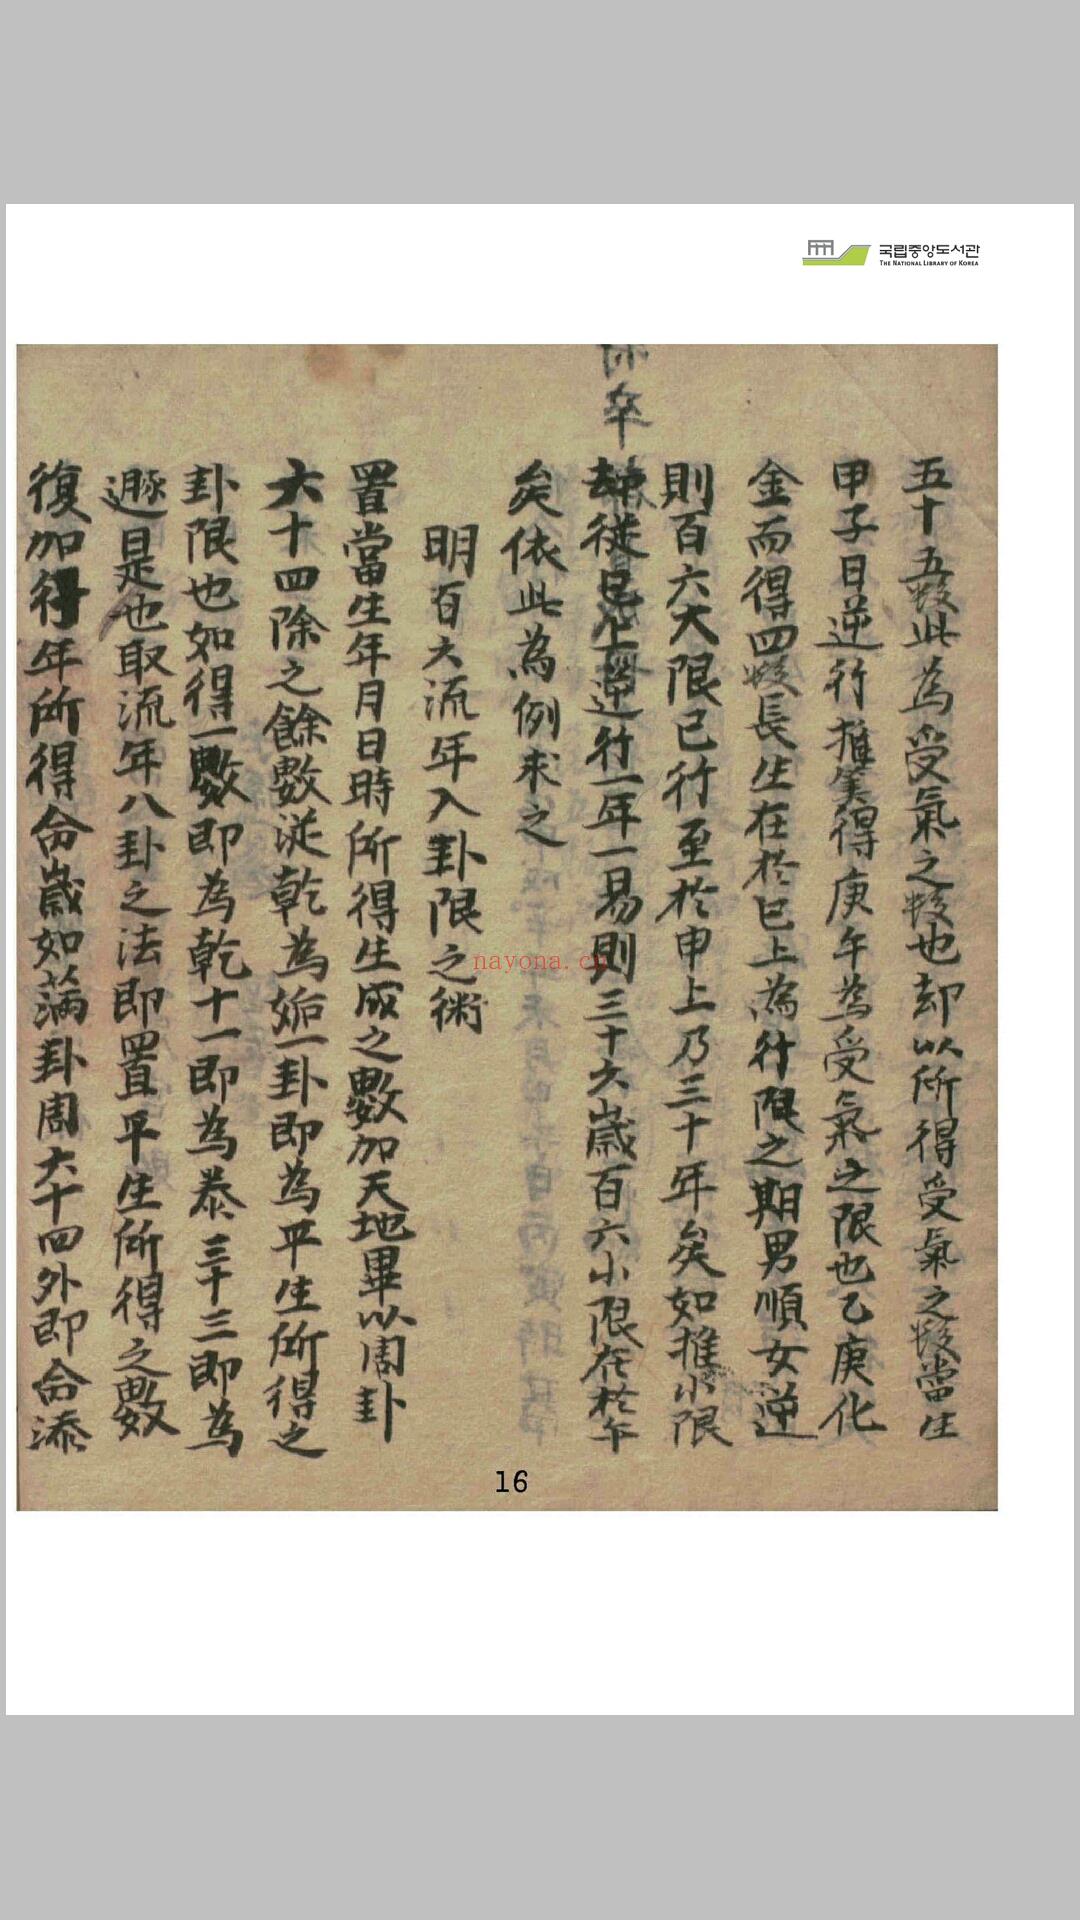 국립중앙도서관
THE NATIONAL LIBRARY OF KOREA
五十五數此為受氣之數也却以所得受氣之數當生
甲子日逆行推筭得庚午為受氣之限也乙庚化
金而得四數長生在於巳上為行限之期男順女逆
則百六大限已行至於申上乃三十年矣如推小限
却從巳上逆行一年一易則三十六歲百六小限在於午
矣依此為例求之
明百六流年入卦限之術
置當生年月日時所得生成之數加天地畢以周卦
六十四除之餘數從乾為姤一卦即為平生所得之
卦限也如得一數即為乾十一即為泰三十三即為
遯是也取流年八卦之法即置平生所得之數
復加行年所得命歲如滿卦周六十四外即命添
nayona.cn
16